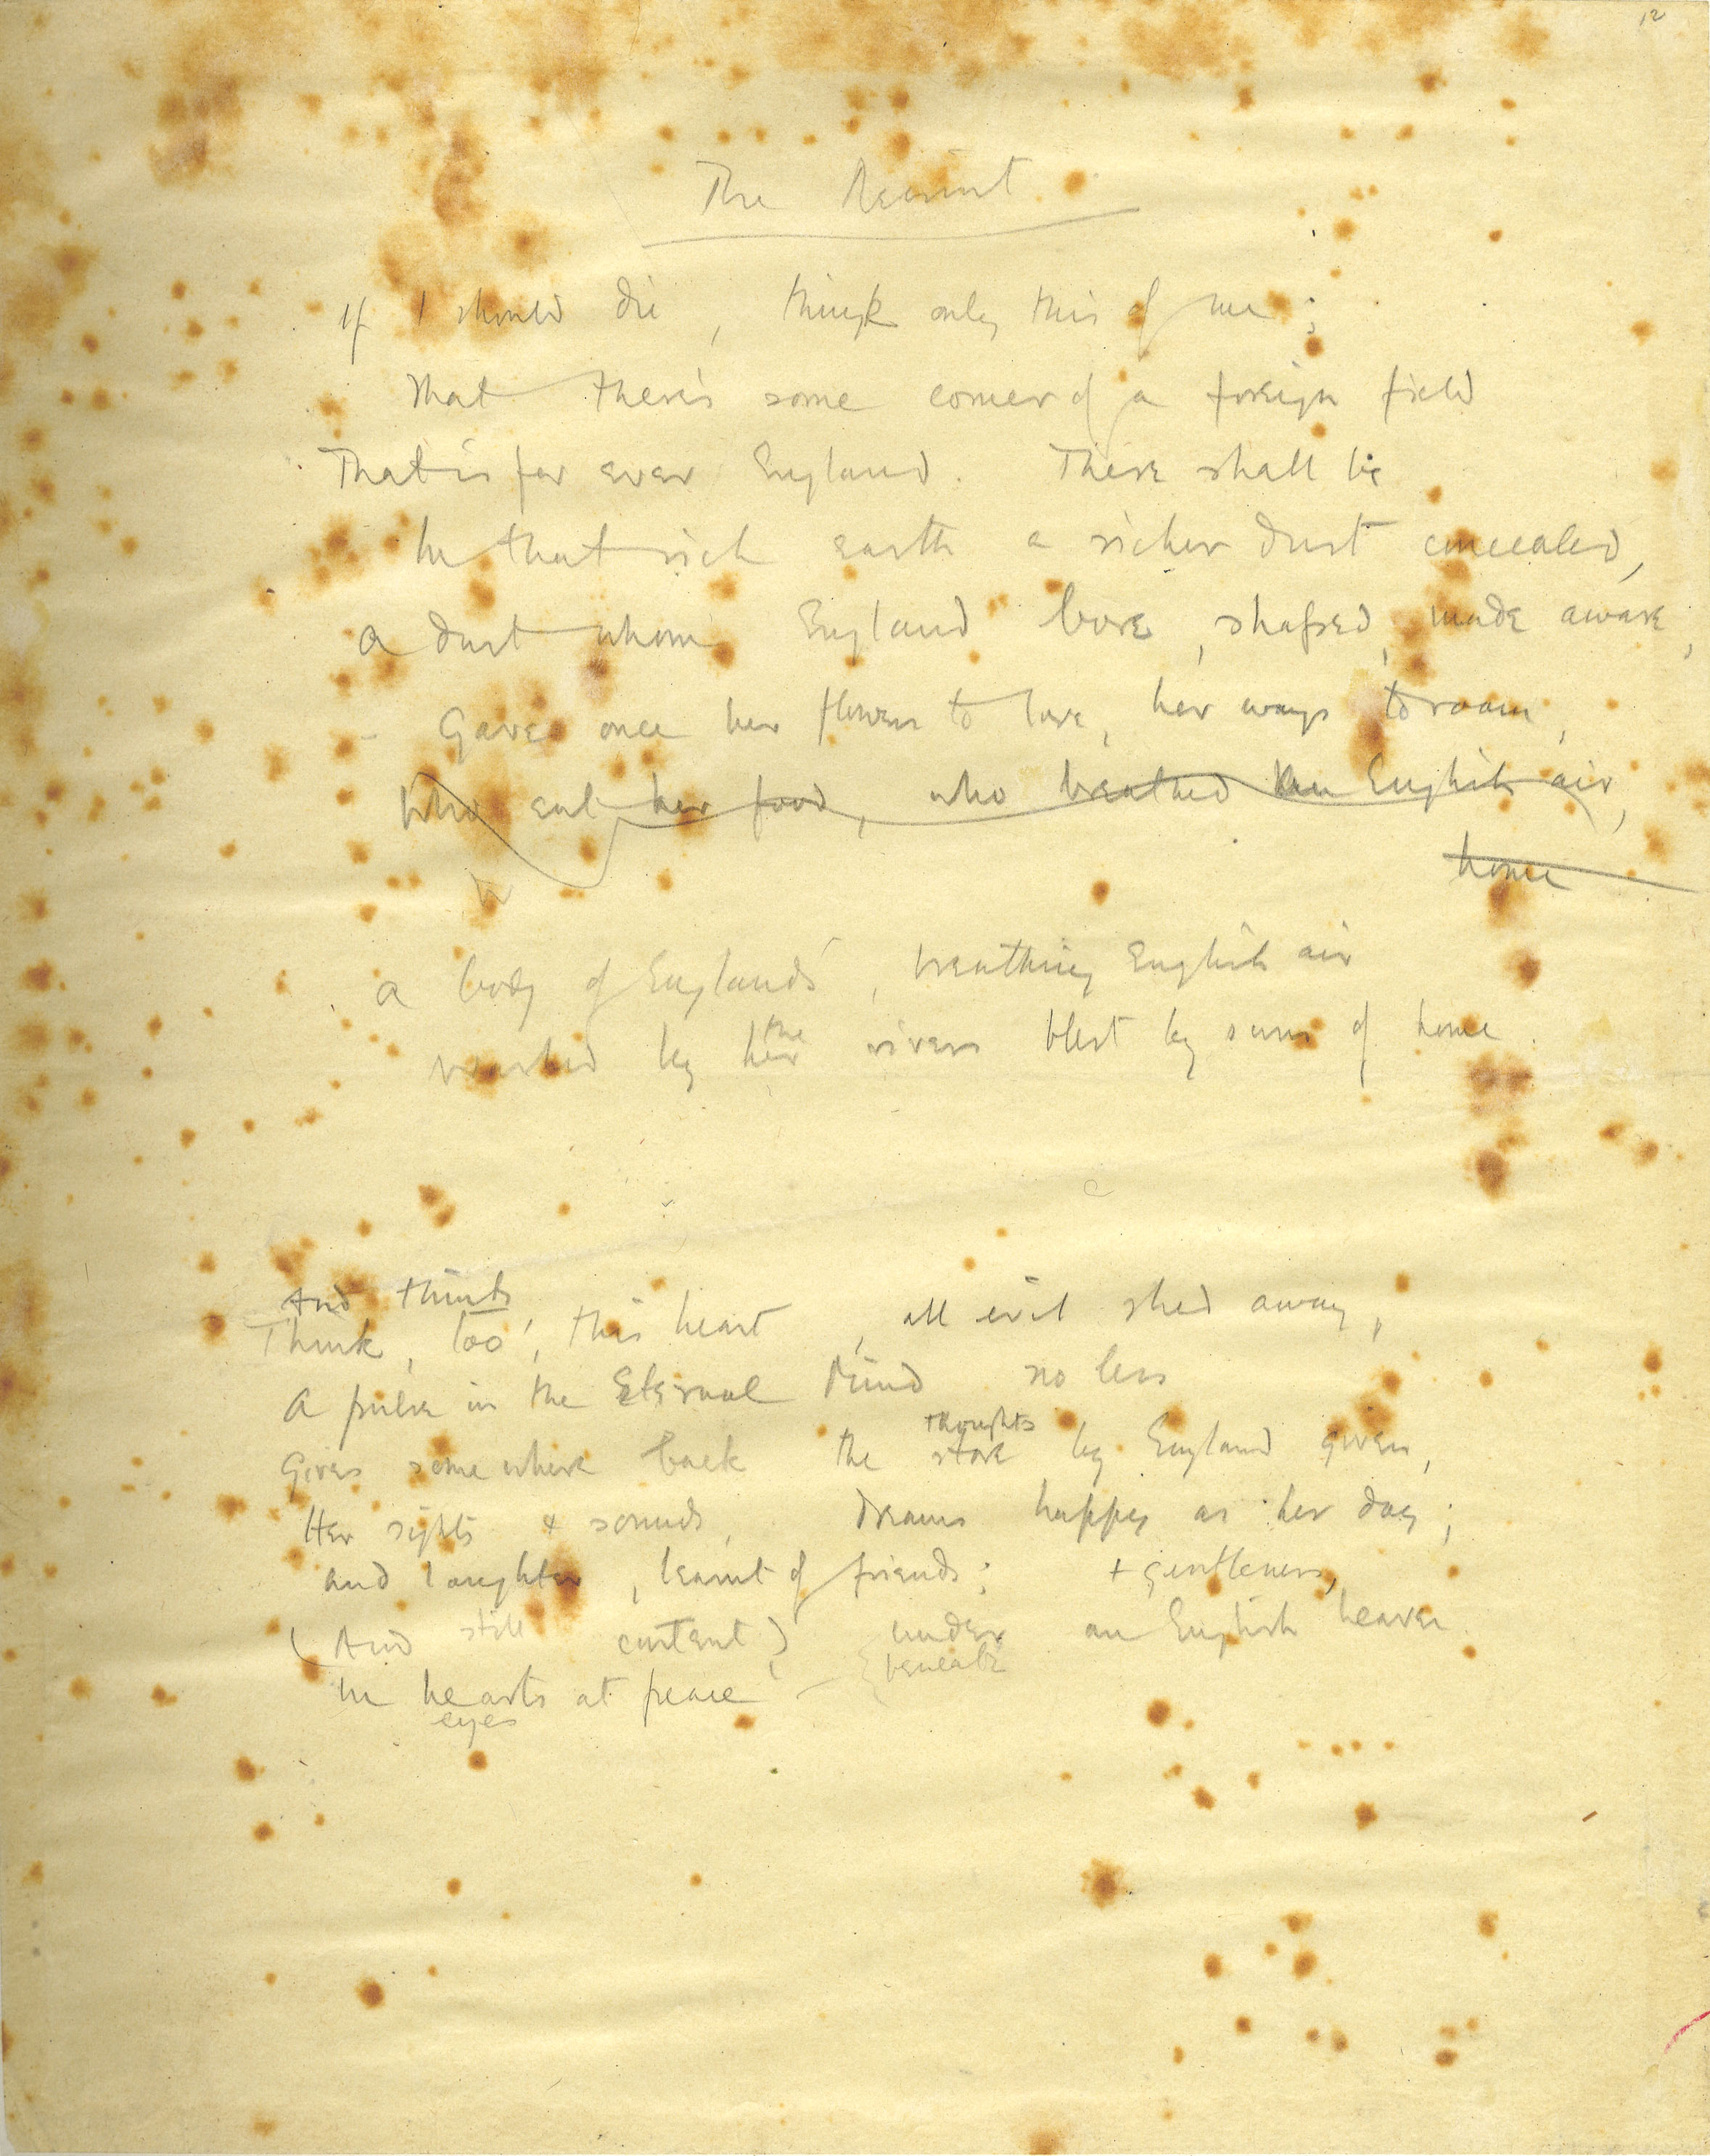 12
The Recruit
If I should die, think only this of me;
That there's some corner of a foreign field
That is for ever England. There shall be
In that rich earth a richer dust concealed,
A dust whom England bore, shaped, made aware;
Gave once her flowers to love, her ways to roam,
Who eat her food, who breathed English air,
home
A body of England's, breathing English air
washed by her the rivers blest by suns of home.
And think
Think, too, this heart, all evil shed away,
A pulse in the Eternal Mind no less
thoughts
Gives somewhere back the store by England given,
Her sights & sounds, dreams happy as her day;
And laughter, learnt of friends; + gentleness,
(And still content) under an English heaven.
beneath
In hearts at peace
eyes